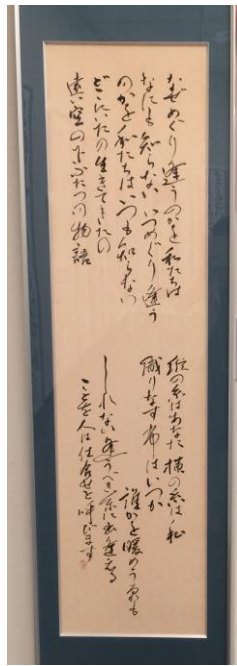 なぜめぐり逢うのかを私たちは
なにも知らないいつめぐり逢う
のかを私たちはいつも知らない
どこにいたの生きてきたの
遠い空の下ふたつの物語
縦の糸はあなた横の糸は私
織りなす布はいつか
誰かを暖めうるかも
しれない逢うべき糸に出逢える
ことを人は仕合せと呼びます